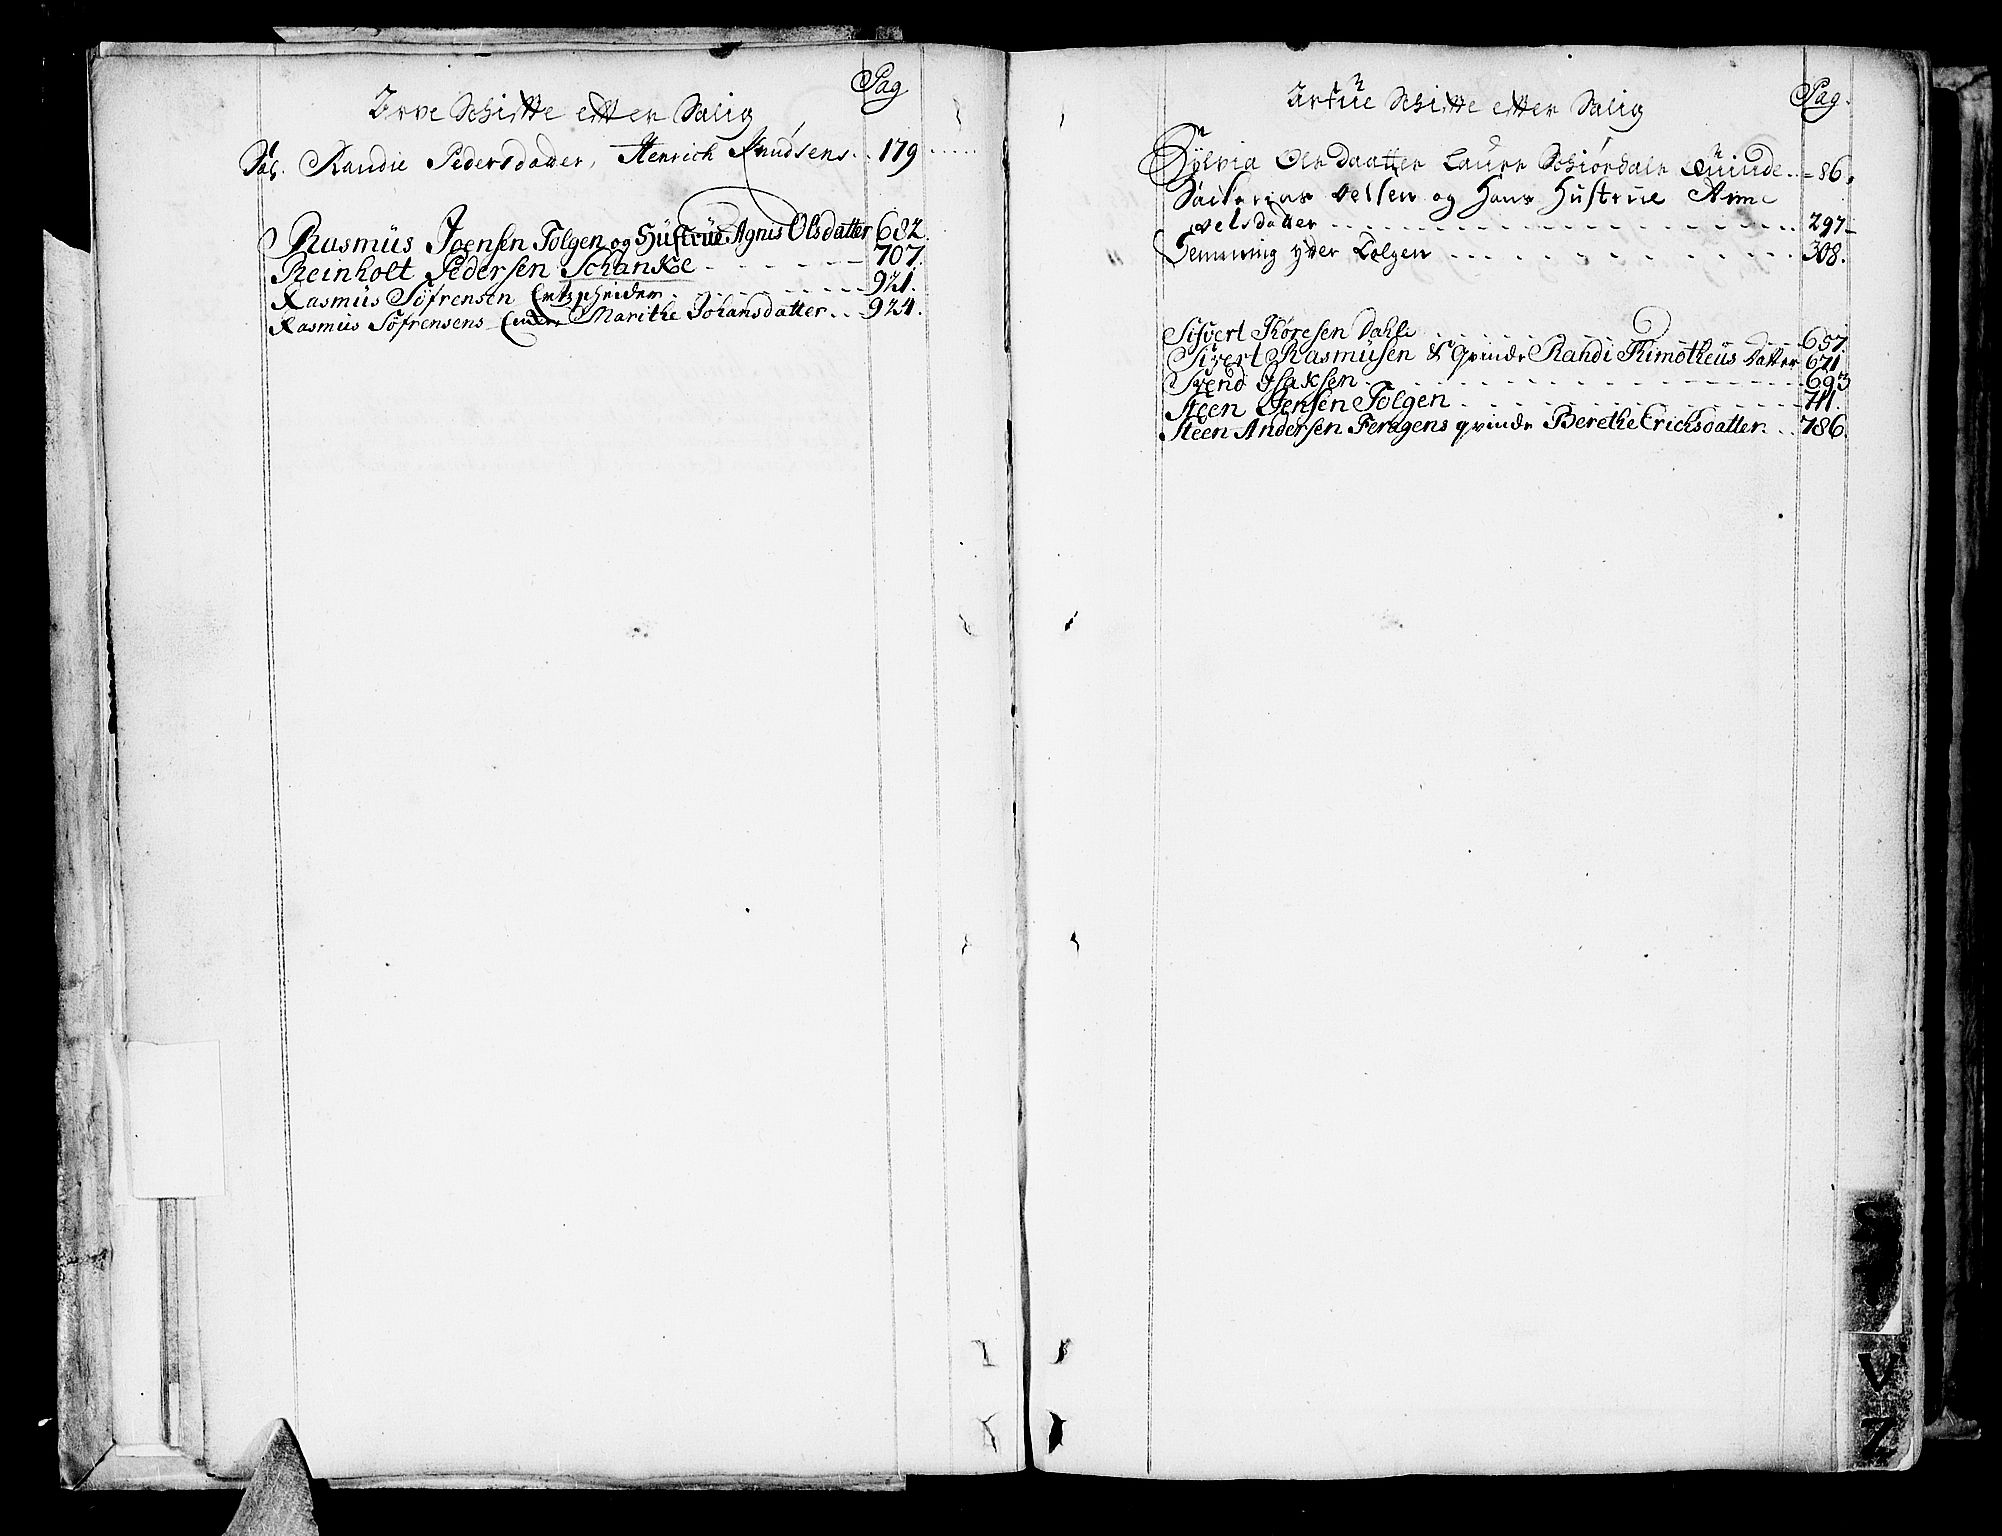 Pag
Arve Schiffte effter Salig
Sal. Randie Pedersdatter, Henrich Knudsens .. 179
Rasmus Joensen Tolgen og Hustrue Agnis Olsdatter 682.
Reinholt Pedersen Schanke - - - - - - - 707.
Rasmus Söfrensen - - - - - - 921.
Rasmus Söfrensens Marithe Johansdatter . . 924.
Arfue Schiffte effter Salig
Pag.
Sylvia Ols Daatter Laurs Schiördals Quinde .. 86.
Velsen og Hans Hustrue Anne
velsdatter - - - - - - - - - - - - 297
Hemming yter Tolgen - - - - - - - - 308.
Sifvert Thöresen Dahle - - - - - - 657.
Sivert Rasmusen & Qvinde Rahdi Thimotheus Datter 671
Svend Isaksen - - - - - - - - - - 693
Steen Jensen Tolgen - - - - - - - - 711.
Steen Andersen Feragens qvinde Berethe Erichsdatter . . 786.
S
V
Z